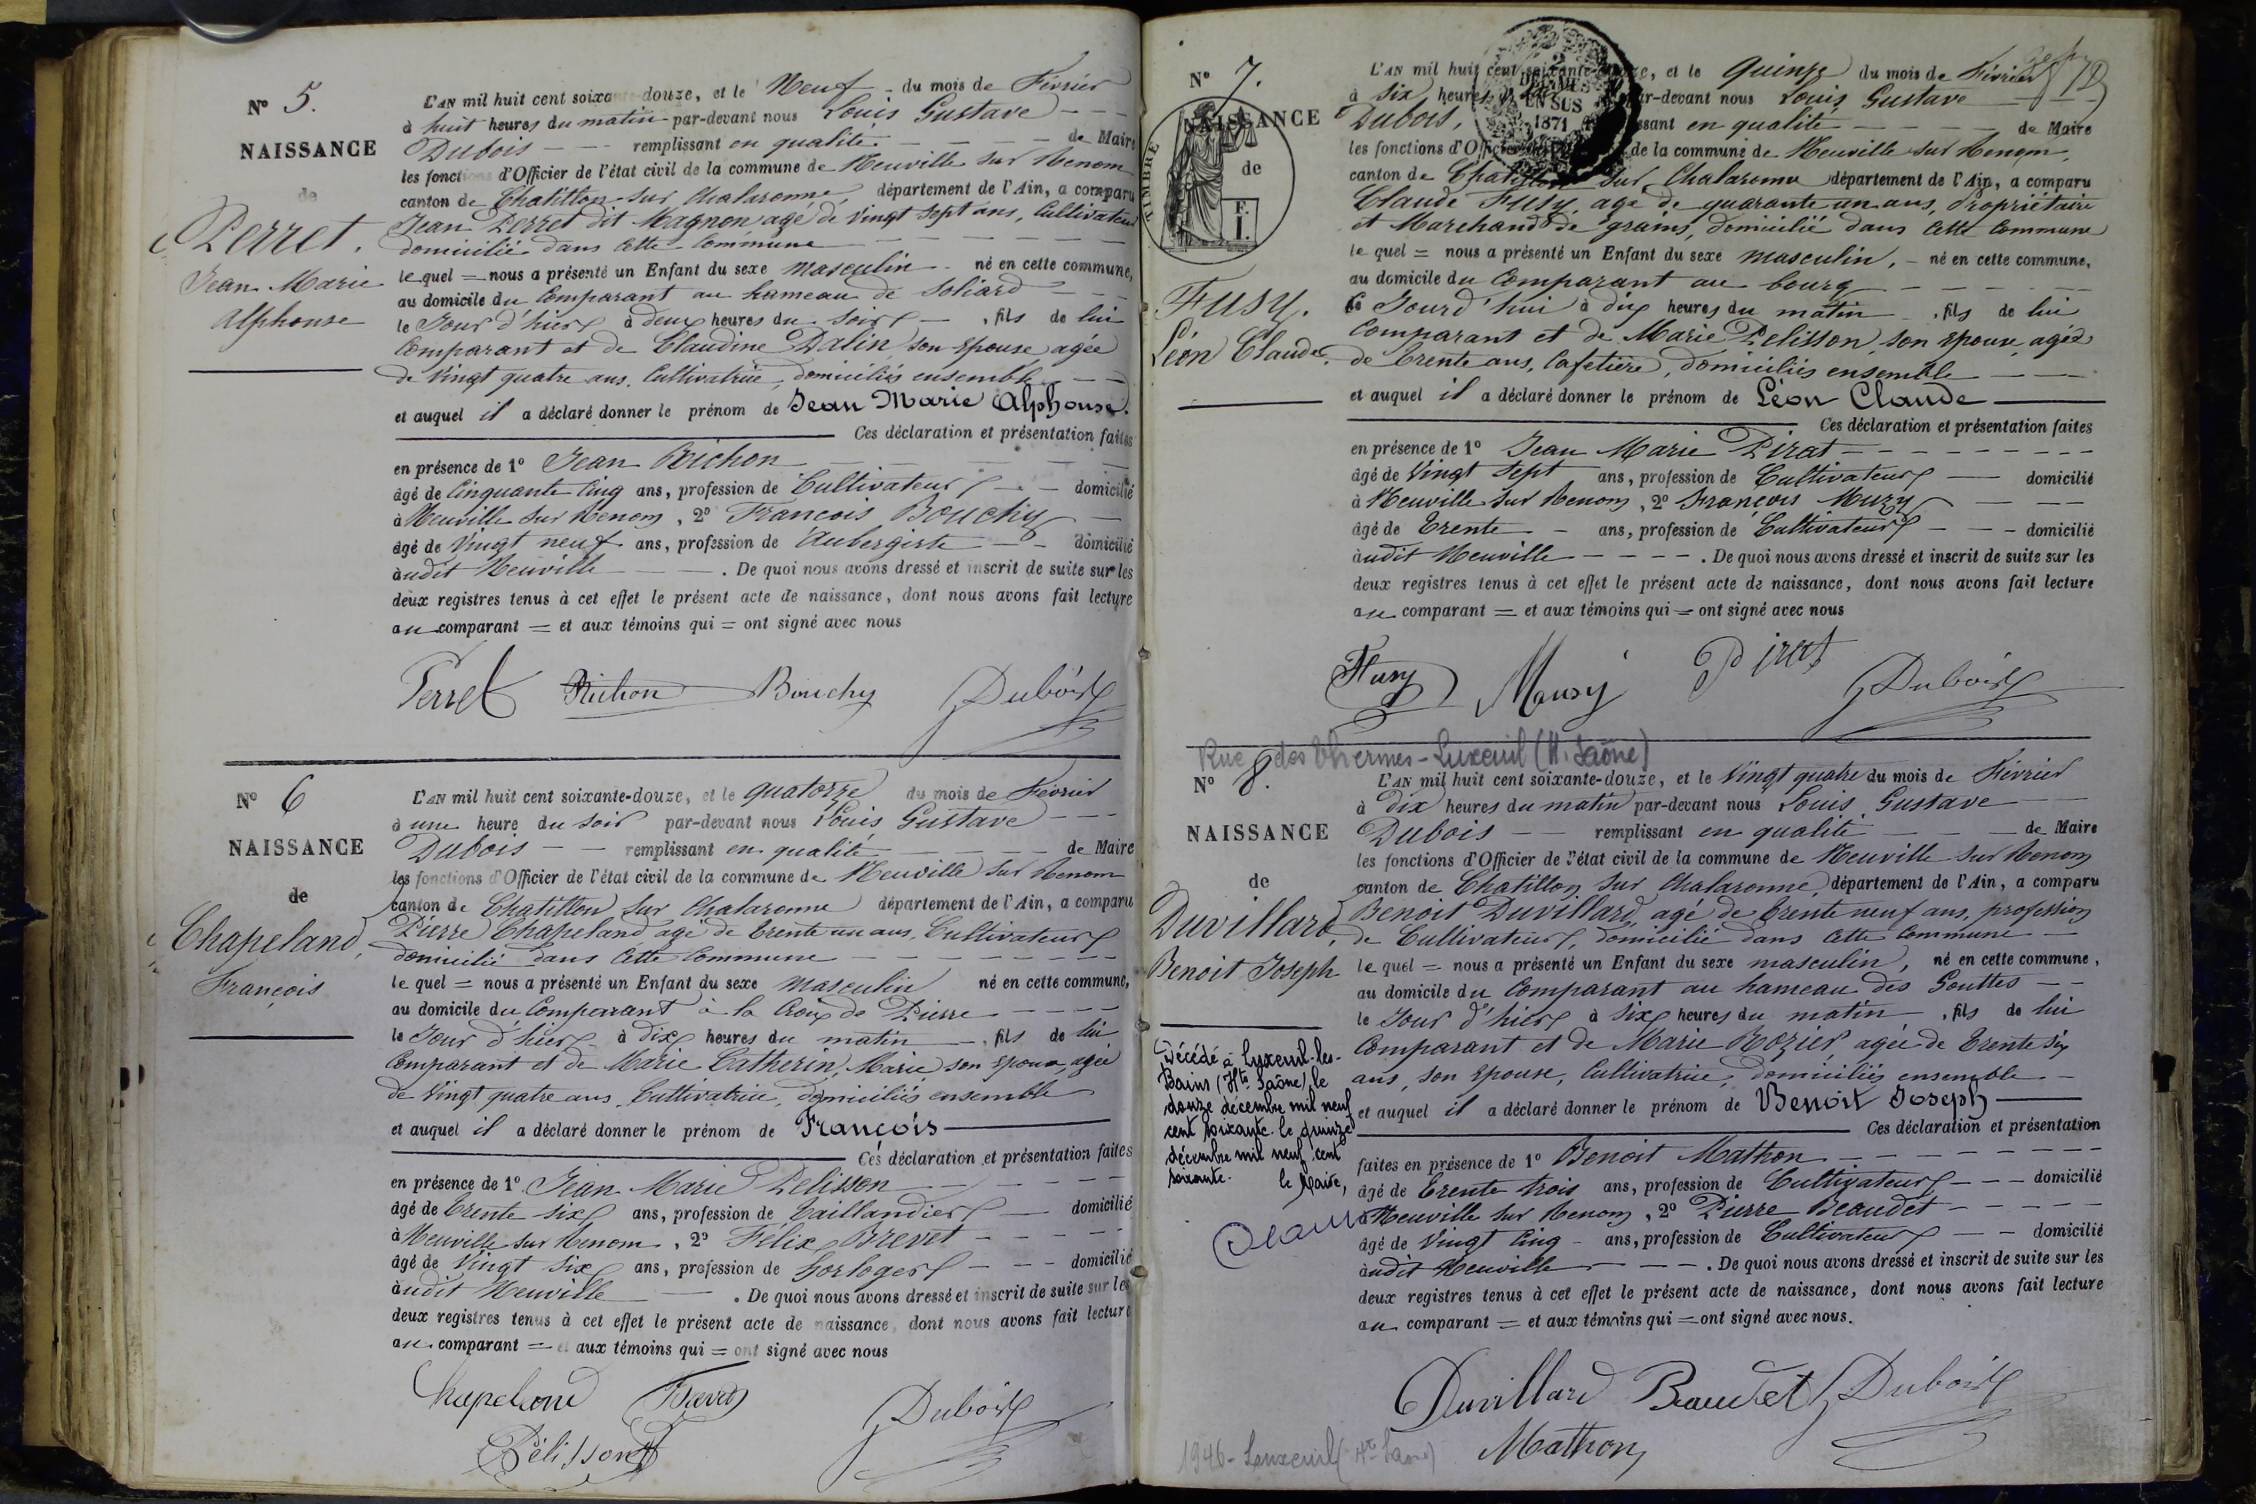 N° 5.
NAISSANCE
de
Perret,
Jean Marie
Alphonse
L'AN mil huit cent soixante-douze, et le Neuf du mois de Février
à huit heures du matin par-devant nous Louis Gustave
Dubois remplissant en qualité de Maire
les fonctions d'Officier de l'état civil de la commune de Neuville sur Renom
canton de Chatillon sur Chalaronne, département de l'Ain, a comparu
Jean Perret dit Magnon agé de vingt sept ans, Cultivateur
domicilié dans cette commune
le quel = nous a présenté un Enfant du sexe masculin né en cette commune,
au domicile du Comparant au hameau de Soliard
le Jour d'hier à deux heures du soir, fils de lui
Comparant et de Claudine Dalin son épouse, agée
de vingt quatre ans, Cultivatrice, domiciliés ensemble
et auquel il a déclaré donner le prénom de Jean Marie Alphonse.
Ces déclaration et présentation faites
en présence de 1° Jean Richon
âgé de Cinquante Cinq ans, profession de Cultivateur domicilié
à Neuville sur Renom, 2° François Bouchy
âgé de Vingt neuf ans, profession de Aubergiste domicilié
àudit Neuville. De quoi nous avons dressé et inscrit de suite sur les
deux registres tenus à cet effet le présent acte de naissance, dont nous avons fait lecture
au comparant = et aux témoins qui = ont signé avec nous
Perret Richon Bouchy Dubois
N° 6
NAISSANCE
de
Chapeland,
François
L'AN mil huit cent soixante-douze, et le quatorze du mois de Février
à une heure du soir par-devant nous Louis Gustave
Dubois remplissant en qualité de Maire
les fonctions d'Officier de l'état civil de la commune de Neuville sur Renom
canton de Chatillon sur Chalaronne département de l'Ain, a comparu
Pierre Chapeland agé de trente un ans, Cultivateur
domicilié dans cette commune
le quel = nous a présenté un Enfant du sexe masculin né en cette commune,
au domicile du Comparant à la Croix de Pierre
le Jour d'hier à dix heures du matin, fils de lui
Comparant et de Marie Catherin, Marie son épouse, agée
de vingt quatre ans, Cultivatrice, domiciliés ensemble
et auquel il a déclaré donner le prénom de François
Ces déclaration et présentation faites
en présence de 1° Jean Marie Pelisson
âgé de Trente six ans, profession de Taillandier domicilié
à Neuville sur Renom, 2° Félix Brevet
âgé de Vingt six ans, profession de horloger domicilié
àudit Neuville. De quoi nous avons dressé et inscrit de suite sur les
deux registres tenus à cet effet le présent acte de naissance, dont nous avons fait lecture
au comparant = et aux témoins qui = ont signé avec nous
Chapeland Dubois
Pélisson
N° 7.
NAISSANCE
de
TIMBRE
Fusy.
Léon Claude.
DÉCIMES
EN SUS
1871
L'AN mil huit cent soixante-douze, et le Quinze du mois de Février
à Six heures par-devant nous Louis Gustave
Dubois, remplissant en qualité de Maire
les fonctions d'Officier de la commune de Neuville sur Renom,
canton de Chatillon sur Chalaronne département de l'Ain, a comparu
Claude Fusy, age de quarante un ans, Propriétaire
et Marchand de grains, domicilié dans cette Commune
le quel = nous a présenté un Enfant du sexe masculin, né en cette commune,
au domicile du Comparant au bourg
ce Jourd'hui à dix heures du matin, fils de lui
Comparant et de Marie Pelisson, son épouse, agée
de trente ans, Cafetière, domiciliés ensemble
et auquel il a déclaré donner le prénom de Léon Claude
Ces déclaration et présentation faites
en présence de 1° Jean Marie Pirat
âgé de Vingt Sept ans, profession de Cultivateur domicilié
à Neuville sur Renom, 2° François Muzy
âgé de Trente ans, profession de Cultivateur domicilié
àudit Neuville. De quoi nous avons dressé et inscrit de suite sur les
deux registres tenus à cet effet le présent acte de naissance, dont nous avons fait lecture
au comparant = et aux témoins qui = ont signé avec nous
Fusy Musy Pirat Dubois
Rue des Thermes - Luxeuil (H. Saône)
N° 8.
NAISSANCE
de
Duvillard,
Benoit Joseph
Décédé à Luxeuil-les-
Bains (Hte Saône) le
douze décembre mil neuf
cent soixante. le quinze
décembre mil neuf cent
soixante. le Maire,
L'AN mil huit cent soixante-douze, et le Vingt quatre du mois de Février
à dix heures du matin par-devant nous Louis Gustave
Dubois remplissant en qualité de Maire
les fonctions d'Officier de l'état civil de la commune de Neuville sur Renom
canton de Chatillon sur Chalaronne, département de l'Ain, a comparu
Benoit Duvillard, agé de trente neuf ans, profession
de Cultivateur, domicilié dans cette commune
le quel = nous a présenté un Enfant du sexe masculin, né en cette commune,
au domicile du Comparant au hameau des Gouttes
le Jour d'hier à six heures du matin, fils de lui
Comparant et de Marie Rozier agée de trente six
ans, son épouse, Cultivatrice, domiciliés ensemble
et auquel il a déclaré donner le prénom de Benoit Joseph
Ces déclaration et présentation
faites en présence de 1° Benoit Mathon
âgé de Trente trois ans, profession de Cultivateur domicilié
à Neuville sur Renom, 2° Pierre Beaudet
âgé de Vingt Cinq ans, profession de Cultivateur domicilié
àudit Neuville. De quoi nous avons dressé et inscrit de suite sur les
deux registres tenus à cet effet le présent acte de naissance, dont nous avons fait lecture
au comparant = et aux témoins qui = ont signé avec nous.
Duvillard Beaudet Dubois
Mathon
1946 - Luxeuil (Hte Saône)